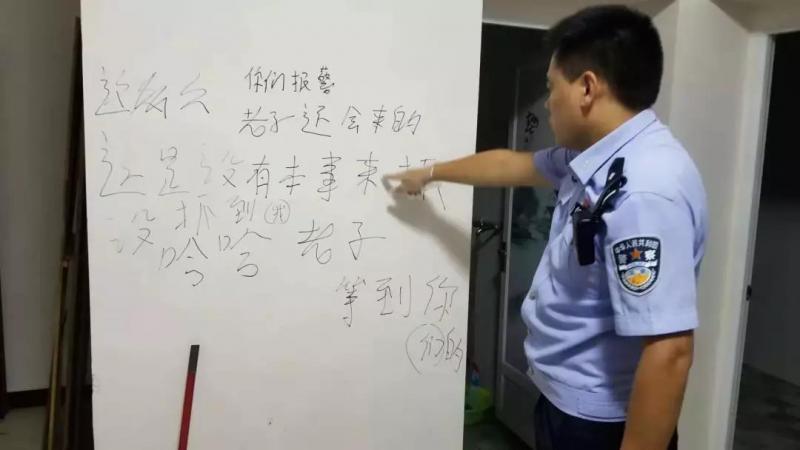 这么久
你们报警
老子还会来的
还是没有本事来抓
没抓到
哈哈 老子
等到你
们的
中华人民共和国
警 察